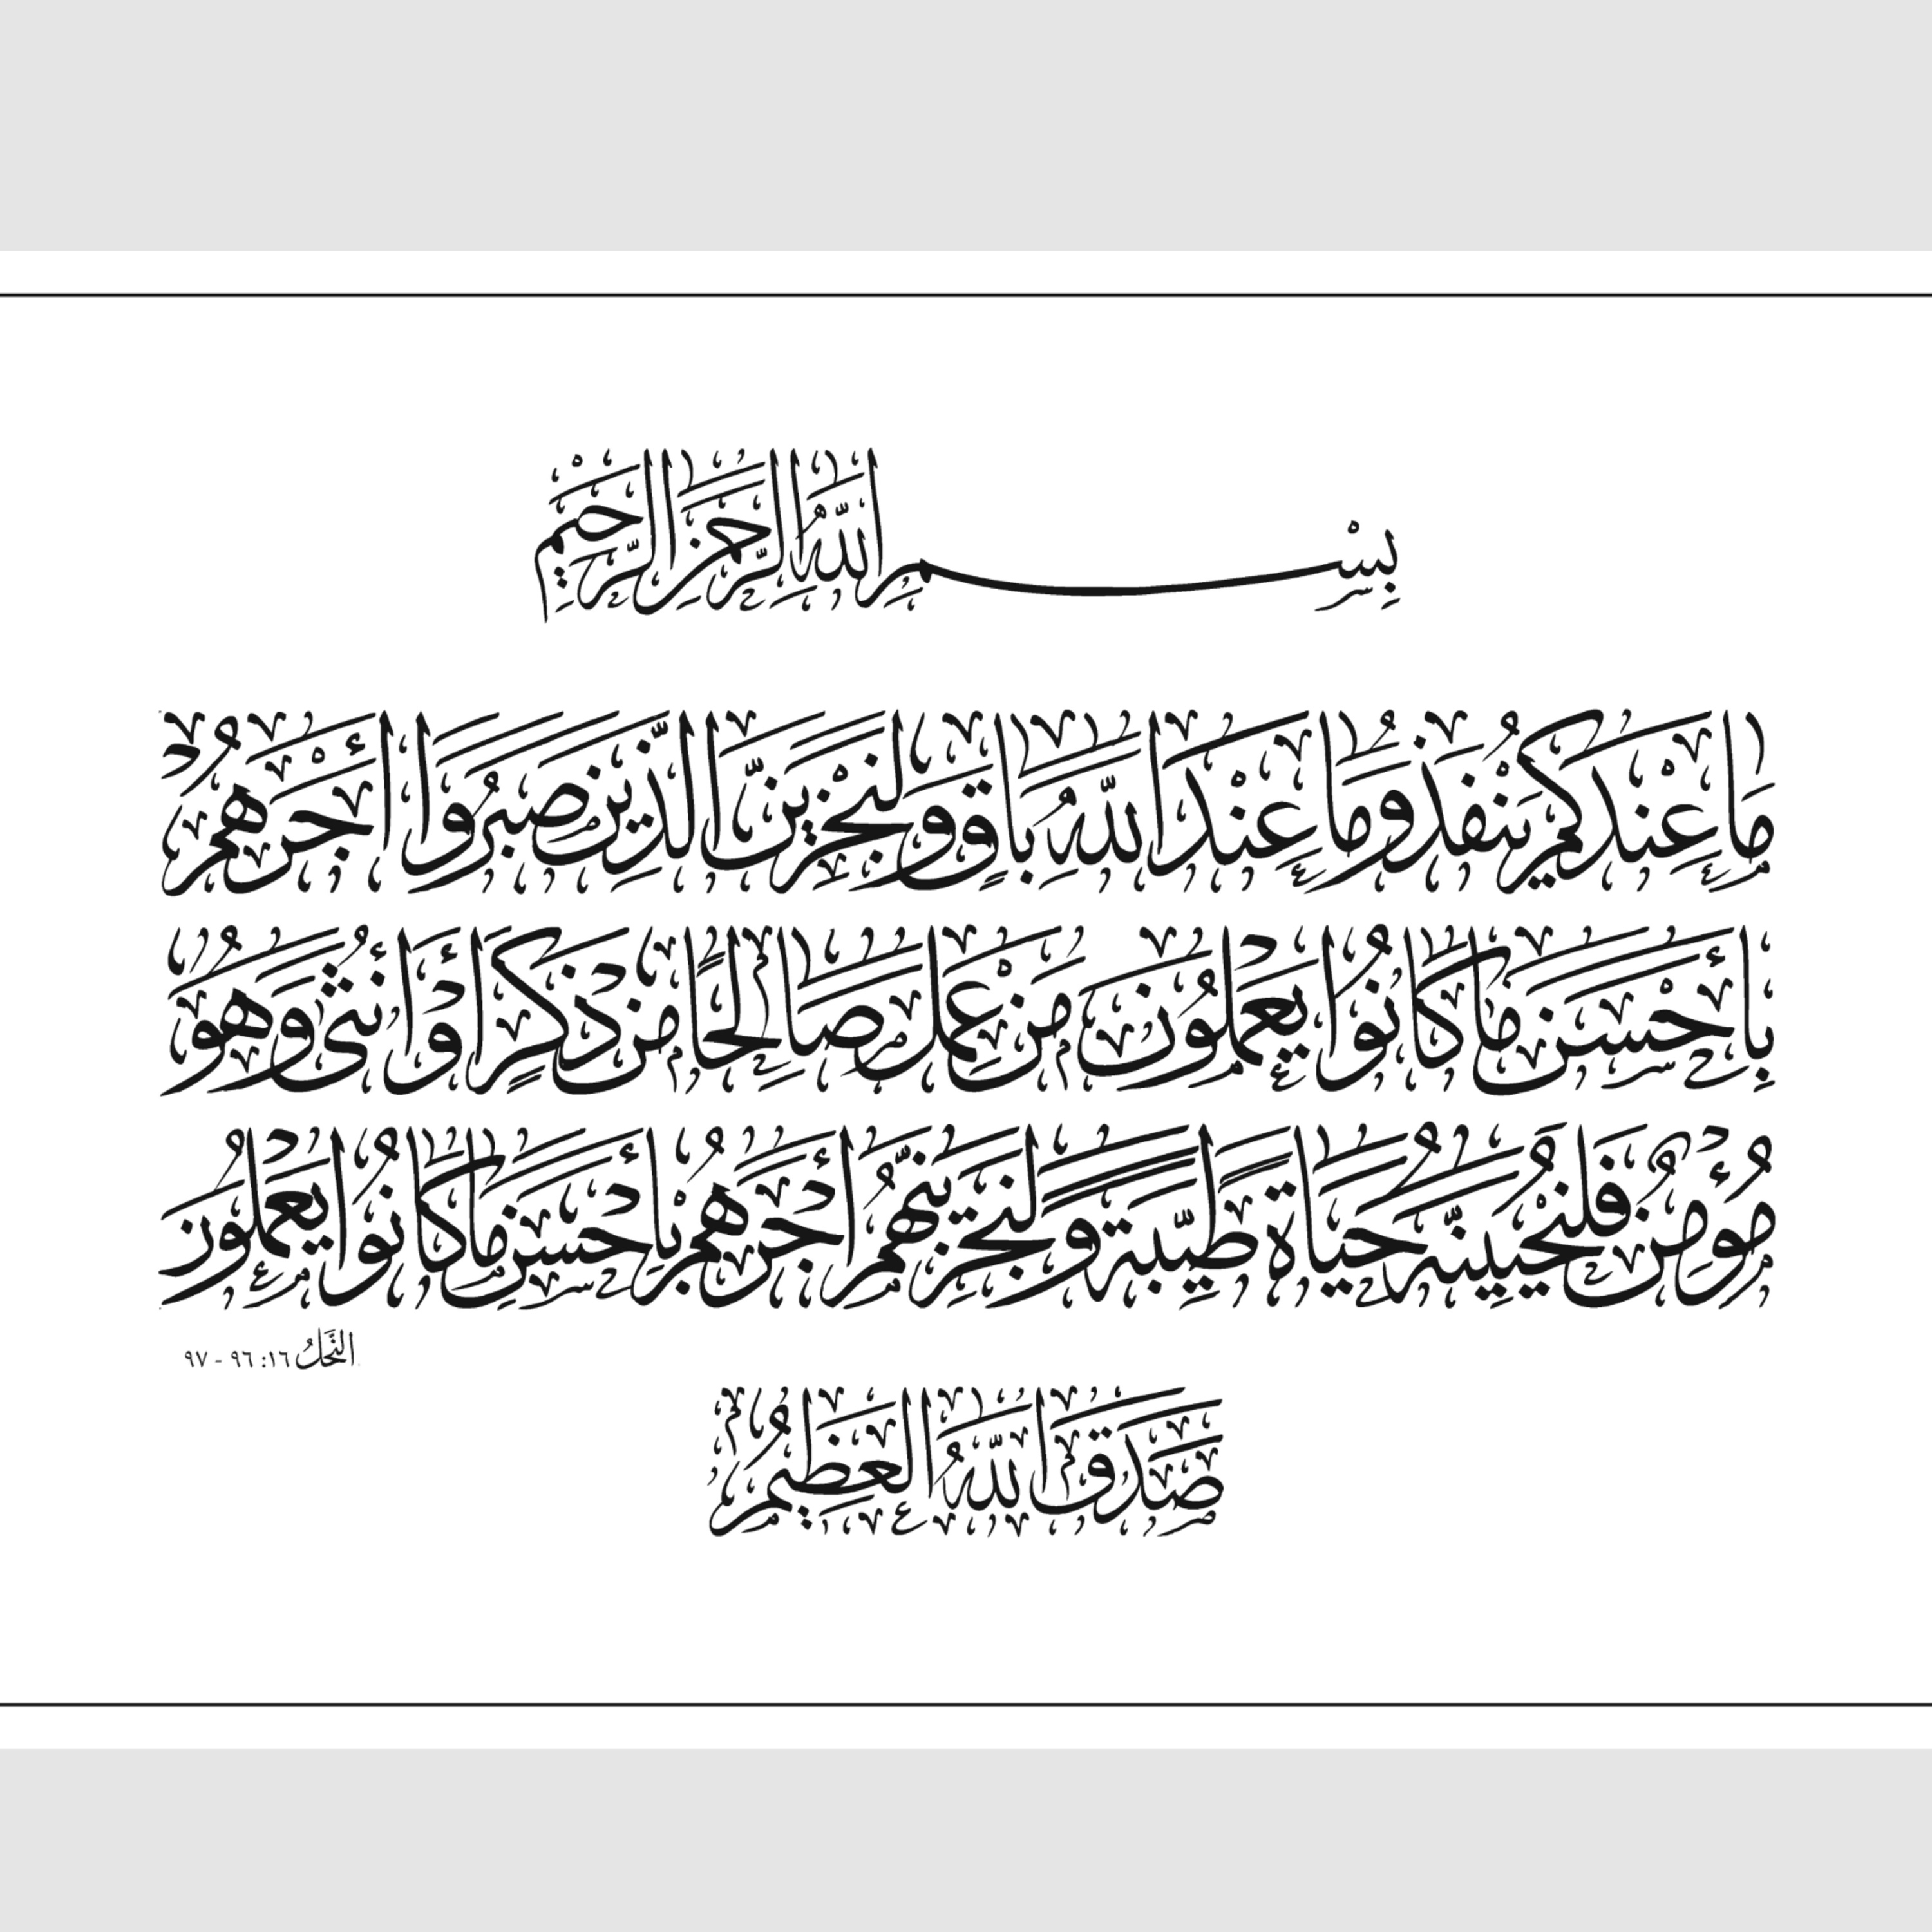 بِسْمِ اللَّهِ الرَّحْمَٰنِ الرَّحِيمِ
مَا عِنْدَكُمْ يَنْفَدُ وَمَا عِنْدَ اللَّهِ بَاقٍ وَلَنَجْزِيَنَّ الَّذِينَ صَبَرُوا أَجْرَهُمْ
بِأَحْسَنِ مَا كَانُوا يَعْمَلُونَ مَنْ عَمِلَ صَالِحًا مِنْ ذَكَرٍ أَوْ أُنْثَى وَهُوَ
مُؤْمِنٌ فَلَنُحْيِيَنَّهُ حَيَاةً طَيِّبَةً وَلَنَجْزِيَنَّهُمْ أَجْرَهُمْ بِأَحْسَنِ مَا كَانُوا يَعْمَلُونَ
النَّحْلُ ١٦: ٩٦ - ٩٧
صَدَقَ اللَّهُ الْعَظِيمُ